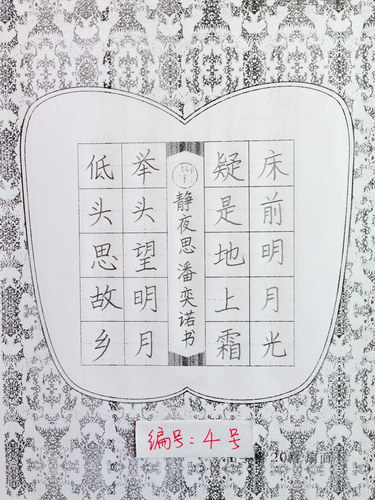 床前明月光
疑是地上霜
静夜思 潘奕诺书
举头望明月
低头思故乡
编号：4号